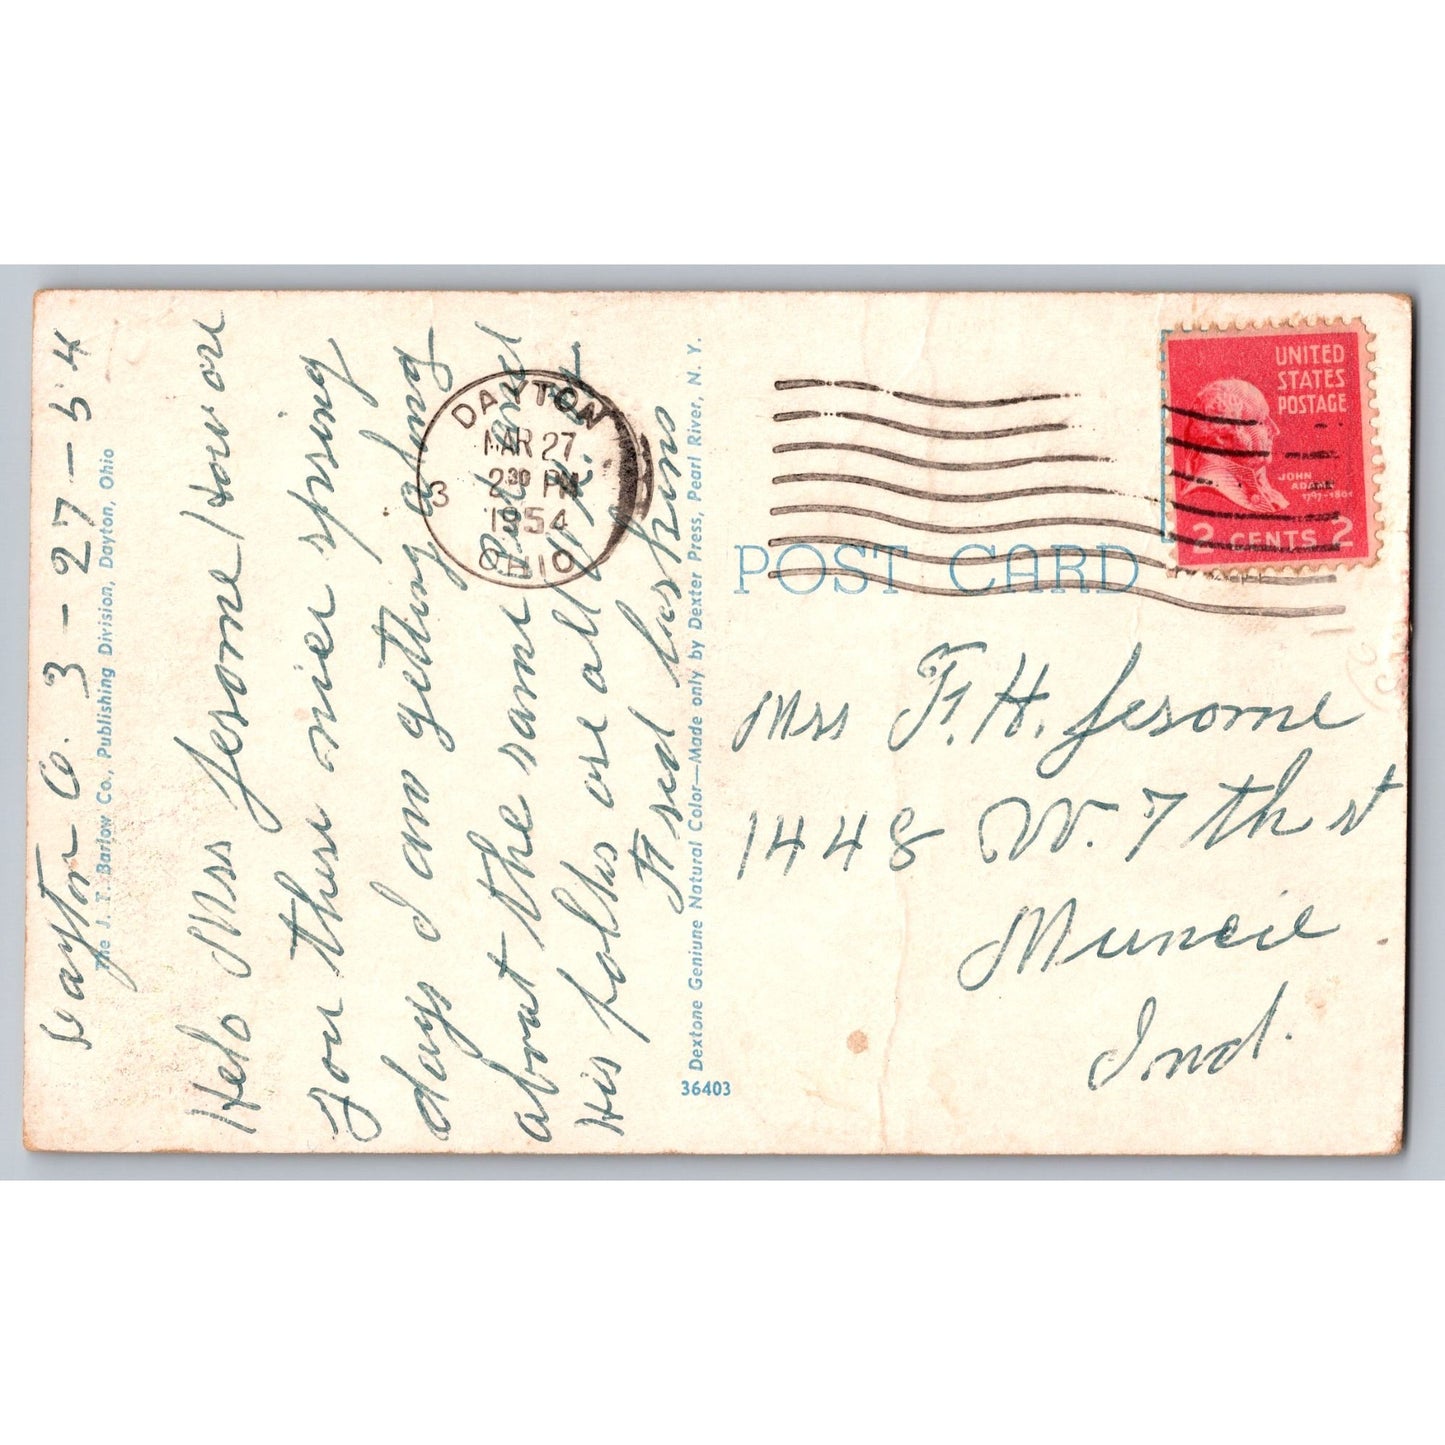 Dayton O. 3-27-54
The J. F. Barlow Co., Publishing Division, Dayton, Ohio
Helo Mrs Jerome/How are
you these nice spring
days I am getting along
about the same Rid and
His folks are all
Fred Larkins
Dextone Geniune Natural Color—Made only by Dexter Press, Pearl River, N. Y.
36403
DAYTON
MAR 27
2 30 PM
1954
OHIO
3
UNITED
STATES
POSTAGE
JOHN
ADAMS
1797-1801
2 CENTS 2
POST CARD
Mrs F. H. Jerome
1448 W. 7th st
Muncie
Ind.